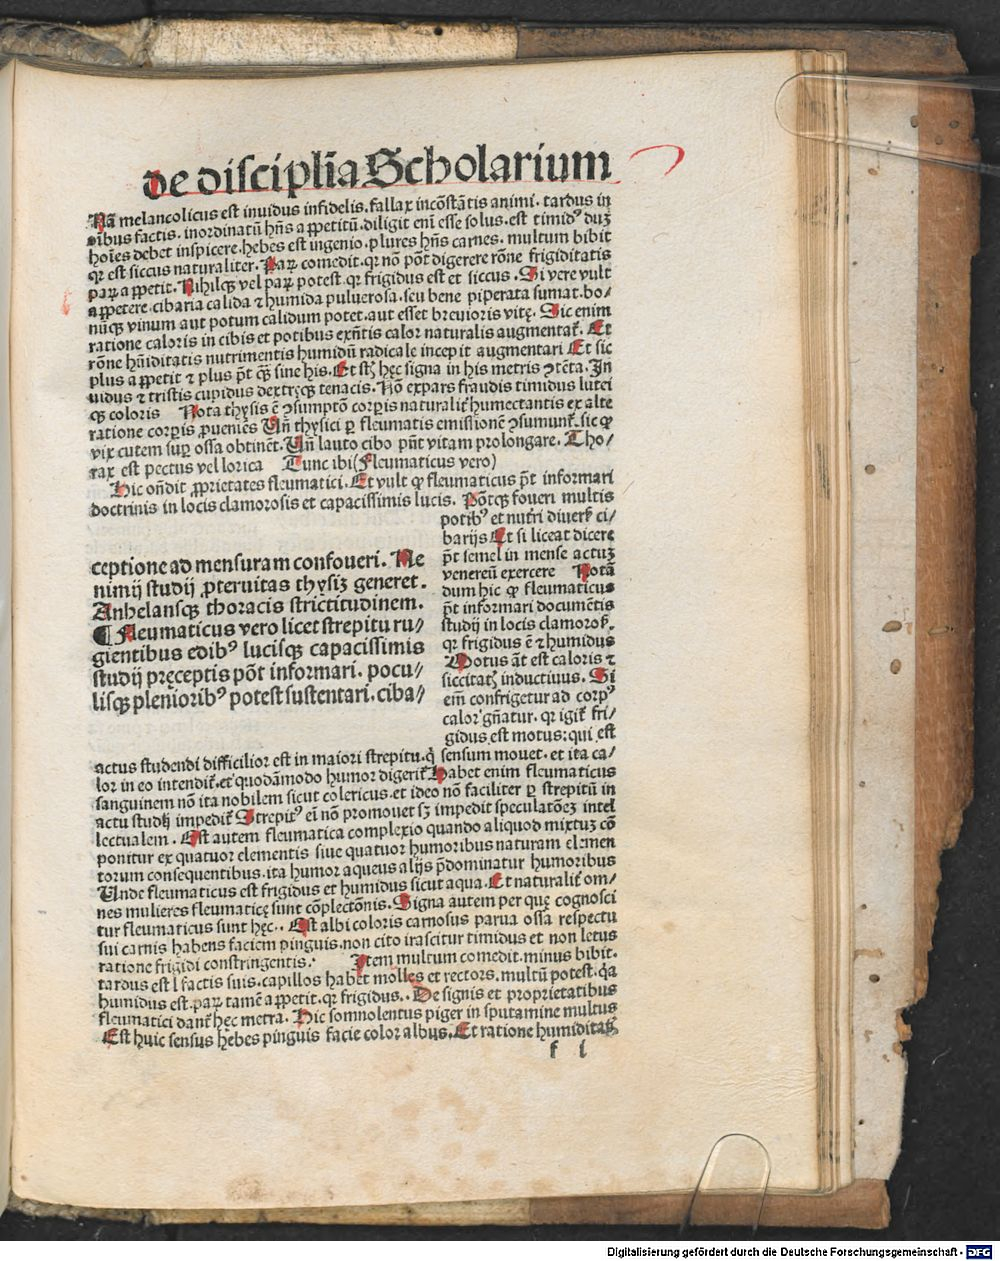 de discipli̅a Scholarium
Na̅ melancolicus est inuidus infidelis. fallax inco̅sta̅tis animi. tardus in
oi̅bus factis. inordinatu̅ hn̅s appetitu̅. diligit eni̅ esse solus. est timidꝰ duꝫ
hoi̅es debet inspicere. hebes est ingenio. plures hn̅s carnes. multum bibit
qꝛ est siccus naturaliter. Paꝝ comedit. qꝛ no̅ po̅t digerere ro̅ne frigiditatis
paꝝ appetit. Nihilqꝫ vel paꝝ potest. qꝛ frigidus est et siccus. Si vere vult
appetere. cibaria calida ⁊ humida puluerosa. seu bene piperata sumat. bo/
nu̅qꝫ vinum aut potum calidum potet. aut esset breuioris vitę. Sic enim
ratione caloris in cibis et potibus exn̅tis calor naturalis augmentat̉. Et
ro̅ne hu̅iditatis nutrimentis humidu̅ radicale incepit augmentari Et sic
plus appetit ⁊ plus po̅t qꝫ̅ sine his. Et sꝫ hęc signa in his metris ꝯte̅ta. In
uidus ⁊ tristis cupidus dextręqꝫ tenacis. No̅ expars fraudis timidus lutei
qꝫ coloris    Nota thysis e̅ ꝯsumpto̅ corꝑis naturalit̉ humectantis ex alte
ratione corꝑis ꝓuenie̅s Vn̅ thysici ꝑ fleumatis emissione̅ ꝯsumunt̉. sic ꝙ
vix cutem suꝑ ossa obtine̅t. Vn̅ lauto cibo pn̅t vitam prolongare. Tho/
rax est pectus vel lorica    Tunc ibi (Fleumaticus vero)
Hic on̅dit ꝓprietates fleumatici. Et vult ꝙ fleumaticus po̅t informari
doctrinis in locis clamorosis et capacissimis lucis. Po̅tqꝫ foueri multis
potibꝰ et nutri̅ diuers̉ ci/
barijs Et si liceat dicere
po̅t semel in mense actuꝫ
venereu̅ exercere    Nota̅
dum hic ꝙ fleumaticus
po̅t informari docume̅tis
studij in locis clamoros̉.
qꝛ frigidus e̅ ⁊ humidus
Motus a̅t est caloris ⁊
siccitatꝭ inductiuus. Si
em̅ confrigetur ad corpꝰ
calor gn̅atur. qꝛ igit̉ fri/
gidus est motus: qui est
ceptione ad mensuram confoueri. Ne
nimij studij ꝓteruitas thysiꝫ generet.
Anhelansqꝫ thoracis strictitudinem.
¶ Fleumaticus vero licet strepitu ru/
gientibus edibꝰ lucisqꝫ capacissimis
studij pręceptis po̅t informari. pocu/
lisqꝫ plenioribꝰ potest sustentari. ciba/
actus studendi difficilior est in maiori strepitu. q̇ sensum mouet. et ita ca/
lor in eo intendit̉. et quoda̅modo humor digerit̉ Habet enim fleumaticus
sanguinem no̅ ita nobilem sicut colericus. et ideo no̅ faciliter ꝑ strepitu̅ in
actu studij impedit̉ Strepitꝰ ei̅ no̅ promouet sꝫ impedit speculato̅eꝫ intel
lectualem. Est autem fleumatica complexio quando aliquod mixtuꝫ co̅
ponitur ex quatuor elementis siue quatuor humoribus naturam elemen
torum consequentibus. ita humor aqueus alijs p̅dominatur humoribus
Unde fleumaticus est frigidus et humidus sicut aqua. Et naturalit̉ om/
nes mulieres fleumaticę sunt co̅plecto̅nis. Signa autem per quę cognosci
tur fleumaticus sunt hęc.. Est albi coloris carnosus parua ossa respectu
sui carnis habens faciem pinguis. non cito irascitur timidus et non letus
ratione frigidi constringentis.    Item multum comedit. minus bibit.
tardus est ī factis suis. capillos habet molles et rectos. multu̅ potest. q̇a
humidus est. paꝝ tame̅ appetit. qꝛ frigidus.. De signis et proprietatibus
fleumatici dant̉ hęc metra. Hic somnolentus piger in sputamine multus
Est huic sensus hebes pinguis facie color albus. Et ratione humiditatꝭ
f  i
Digitalisierung gefördert durch die Deutsche Forschungsgemeinschaft - DFG